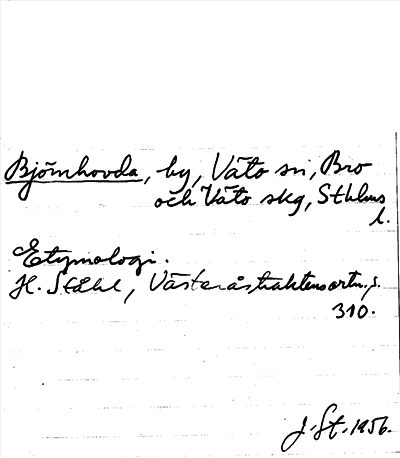 Björnhovda, by, Väto sn, Bro
och Väto skg, Sthlms
l.
Etymologi.
H. Ståhl, Västeråstraktens ortn. s.
310.
J. St. 1956.